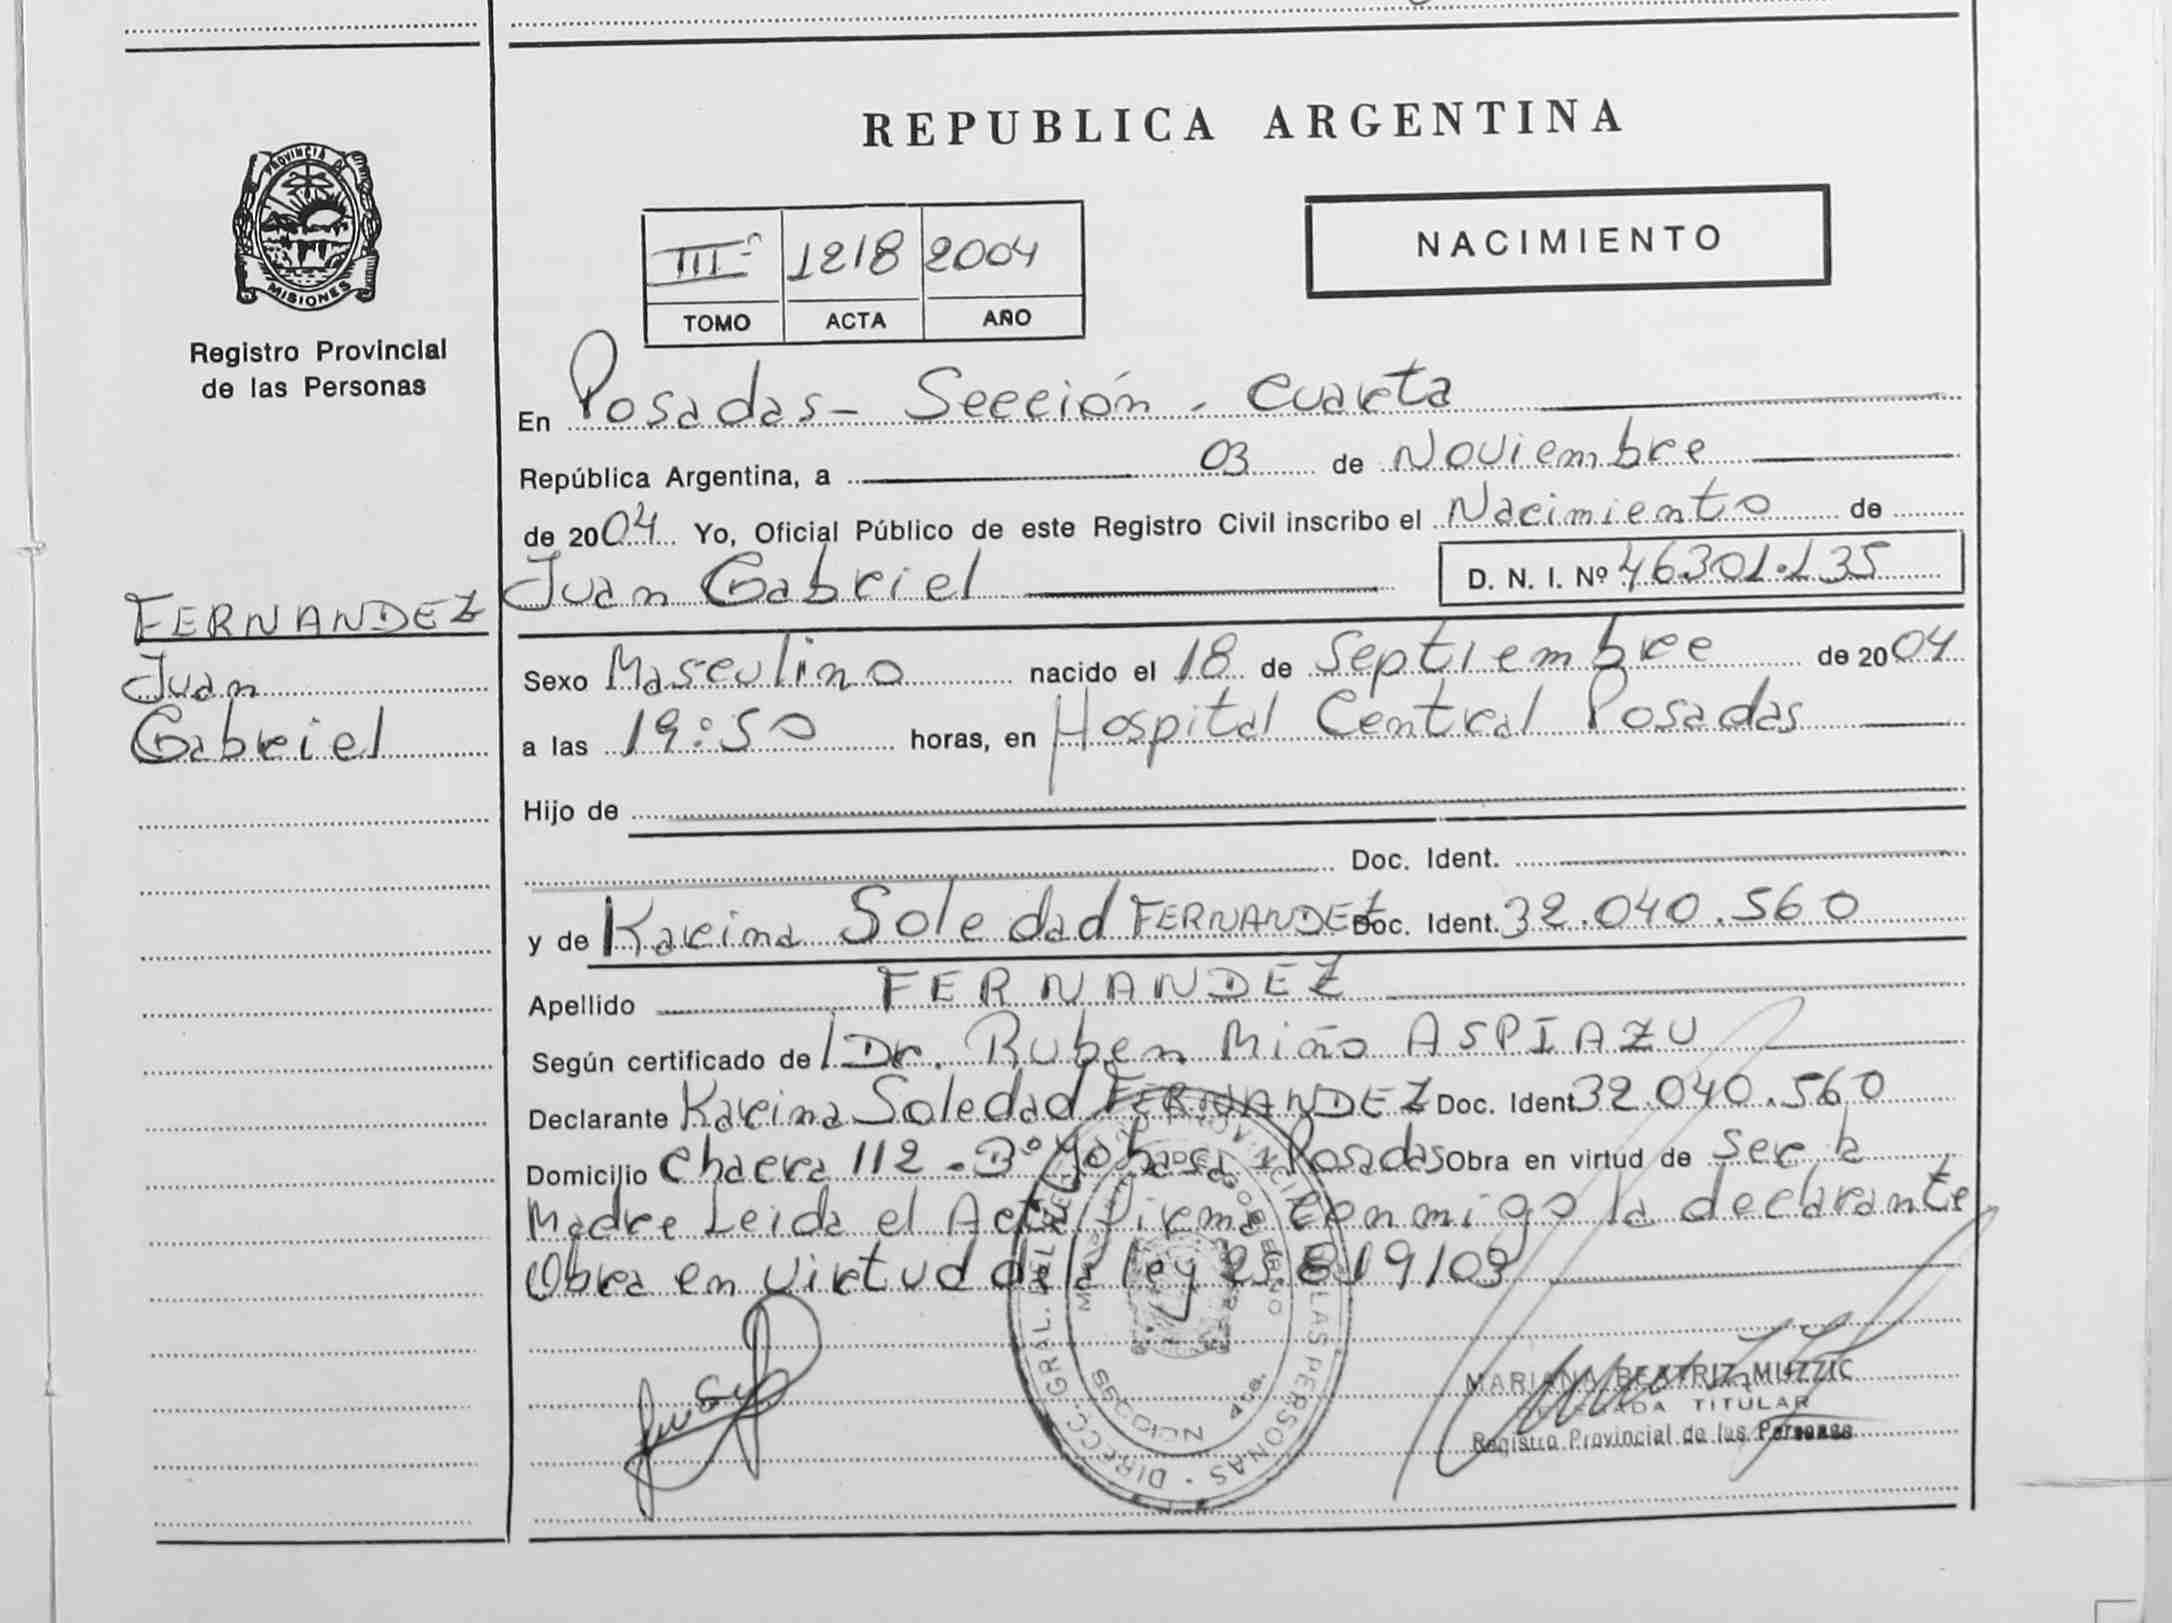 PROVINCIA DE
MISIONES
Registro Provincial
de las Personas
FERNANDEZ
Juan
Gabriel
REPUBLICA ARGENTINA
III° 1218 2004
TOMO ACTA AÑO
NACIMIENTO
En Posadas - Sección - Cuarta
República Argentina, a 03 de Noviembre
de 2004 Yo, Oficial Público de este Registro Civil inscribo el Nacimiento de
Juan Gabriel D. N. I. Nº 46301.135
Sexo Masculino nacido el 18 de Septiembre de 2004
a las 19:50 horas, en Hospital Central Posadas
Hijo de
Doc. Ident.
y de Karina Soledad FERNANDEZ Doc. Ident. 32.040.560
Apellido FERNANDEZ
Según certificado de Dr. Ruben Miño ASPIAZU
Declarante Karina Soledad FERNANDEZ Doc. Ident 32.040.560
Domicilio Chacra 112 - Posadas Obra en virtud de Ser la
Madre Leida el Acta firma Conmigo la declarante
Obra en virtud de la ley 25.819/03
DIRECC. GRAL. DEL REG. PROVINCIAL DE LAS PERSONAS
MARIANA BEATRIZ MUZZIC
TITULAR
Registro Provincial de las Personas